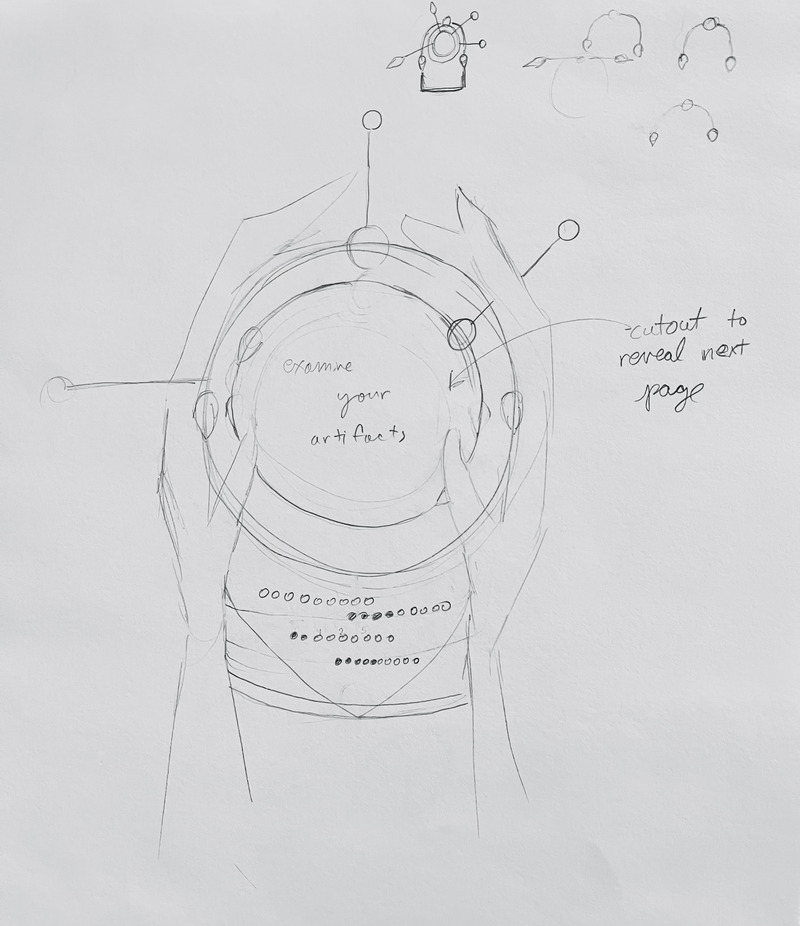 examine
your
artifacts
cutout to
reveal next
page